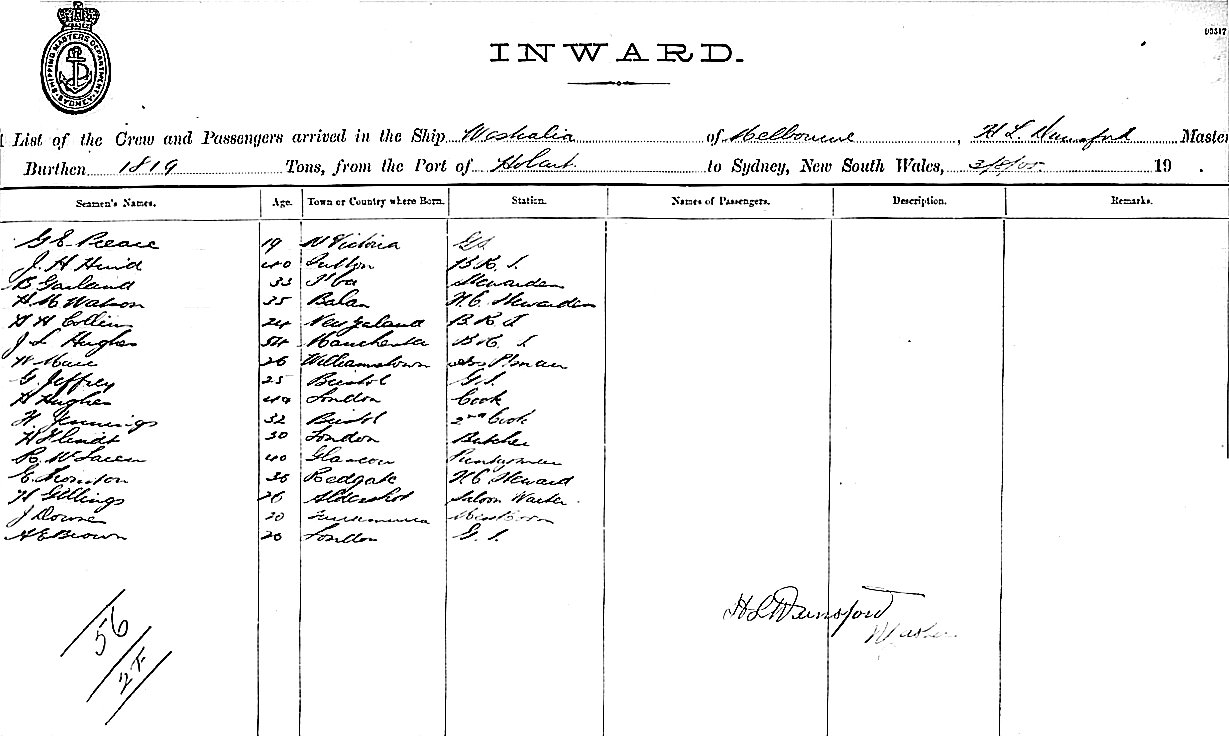 SHIPPING MASTERS DEPARTMENT SYDNEY
00317
INWARD.
List of the Crew and Passengers arrived in the Ship Westralia of Melbourne, H L Dunsford Master
Burthen 1819 Tons, from the Port of Hobart to Sydney, New South Wales, 19 .
Seamen's Names. Age. Town or Country where Born. Station. Names of Passengers. Description. Remarks.
G E Pearce 19 N Victoria GS
J. H Hind 40 B.R.S.
B Garland 33 Stewardess
H M Watson 35 Balan H.C. Stewardess
H H Collins 24 New Zealand B R S
J L Hughes 54 Manchester B.R. S
W 26 Williamstown
G. Jeffrey 25 Bristol G.S.
H Hughes 49 London Cook
H. Jennings 32 Bristol 2nd Cook
H 30 London Butcher
R. W 40 Glascow Pantryman
E. Thornton 36 Redgate H C Steward
H Gillings 26 Aldershot Saloon Waiter
J Downe 20
A E Brown 20 London G. S.
H L Dunsford
Master
56
2 F